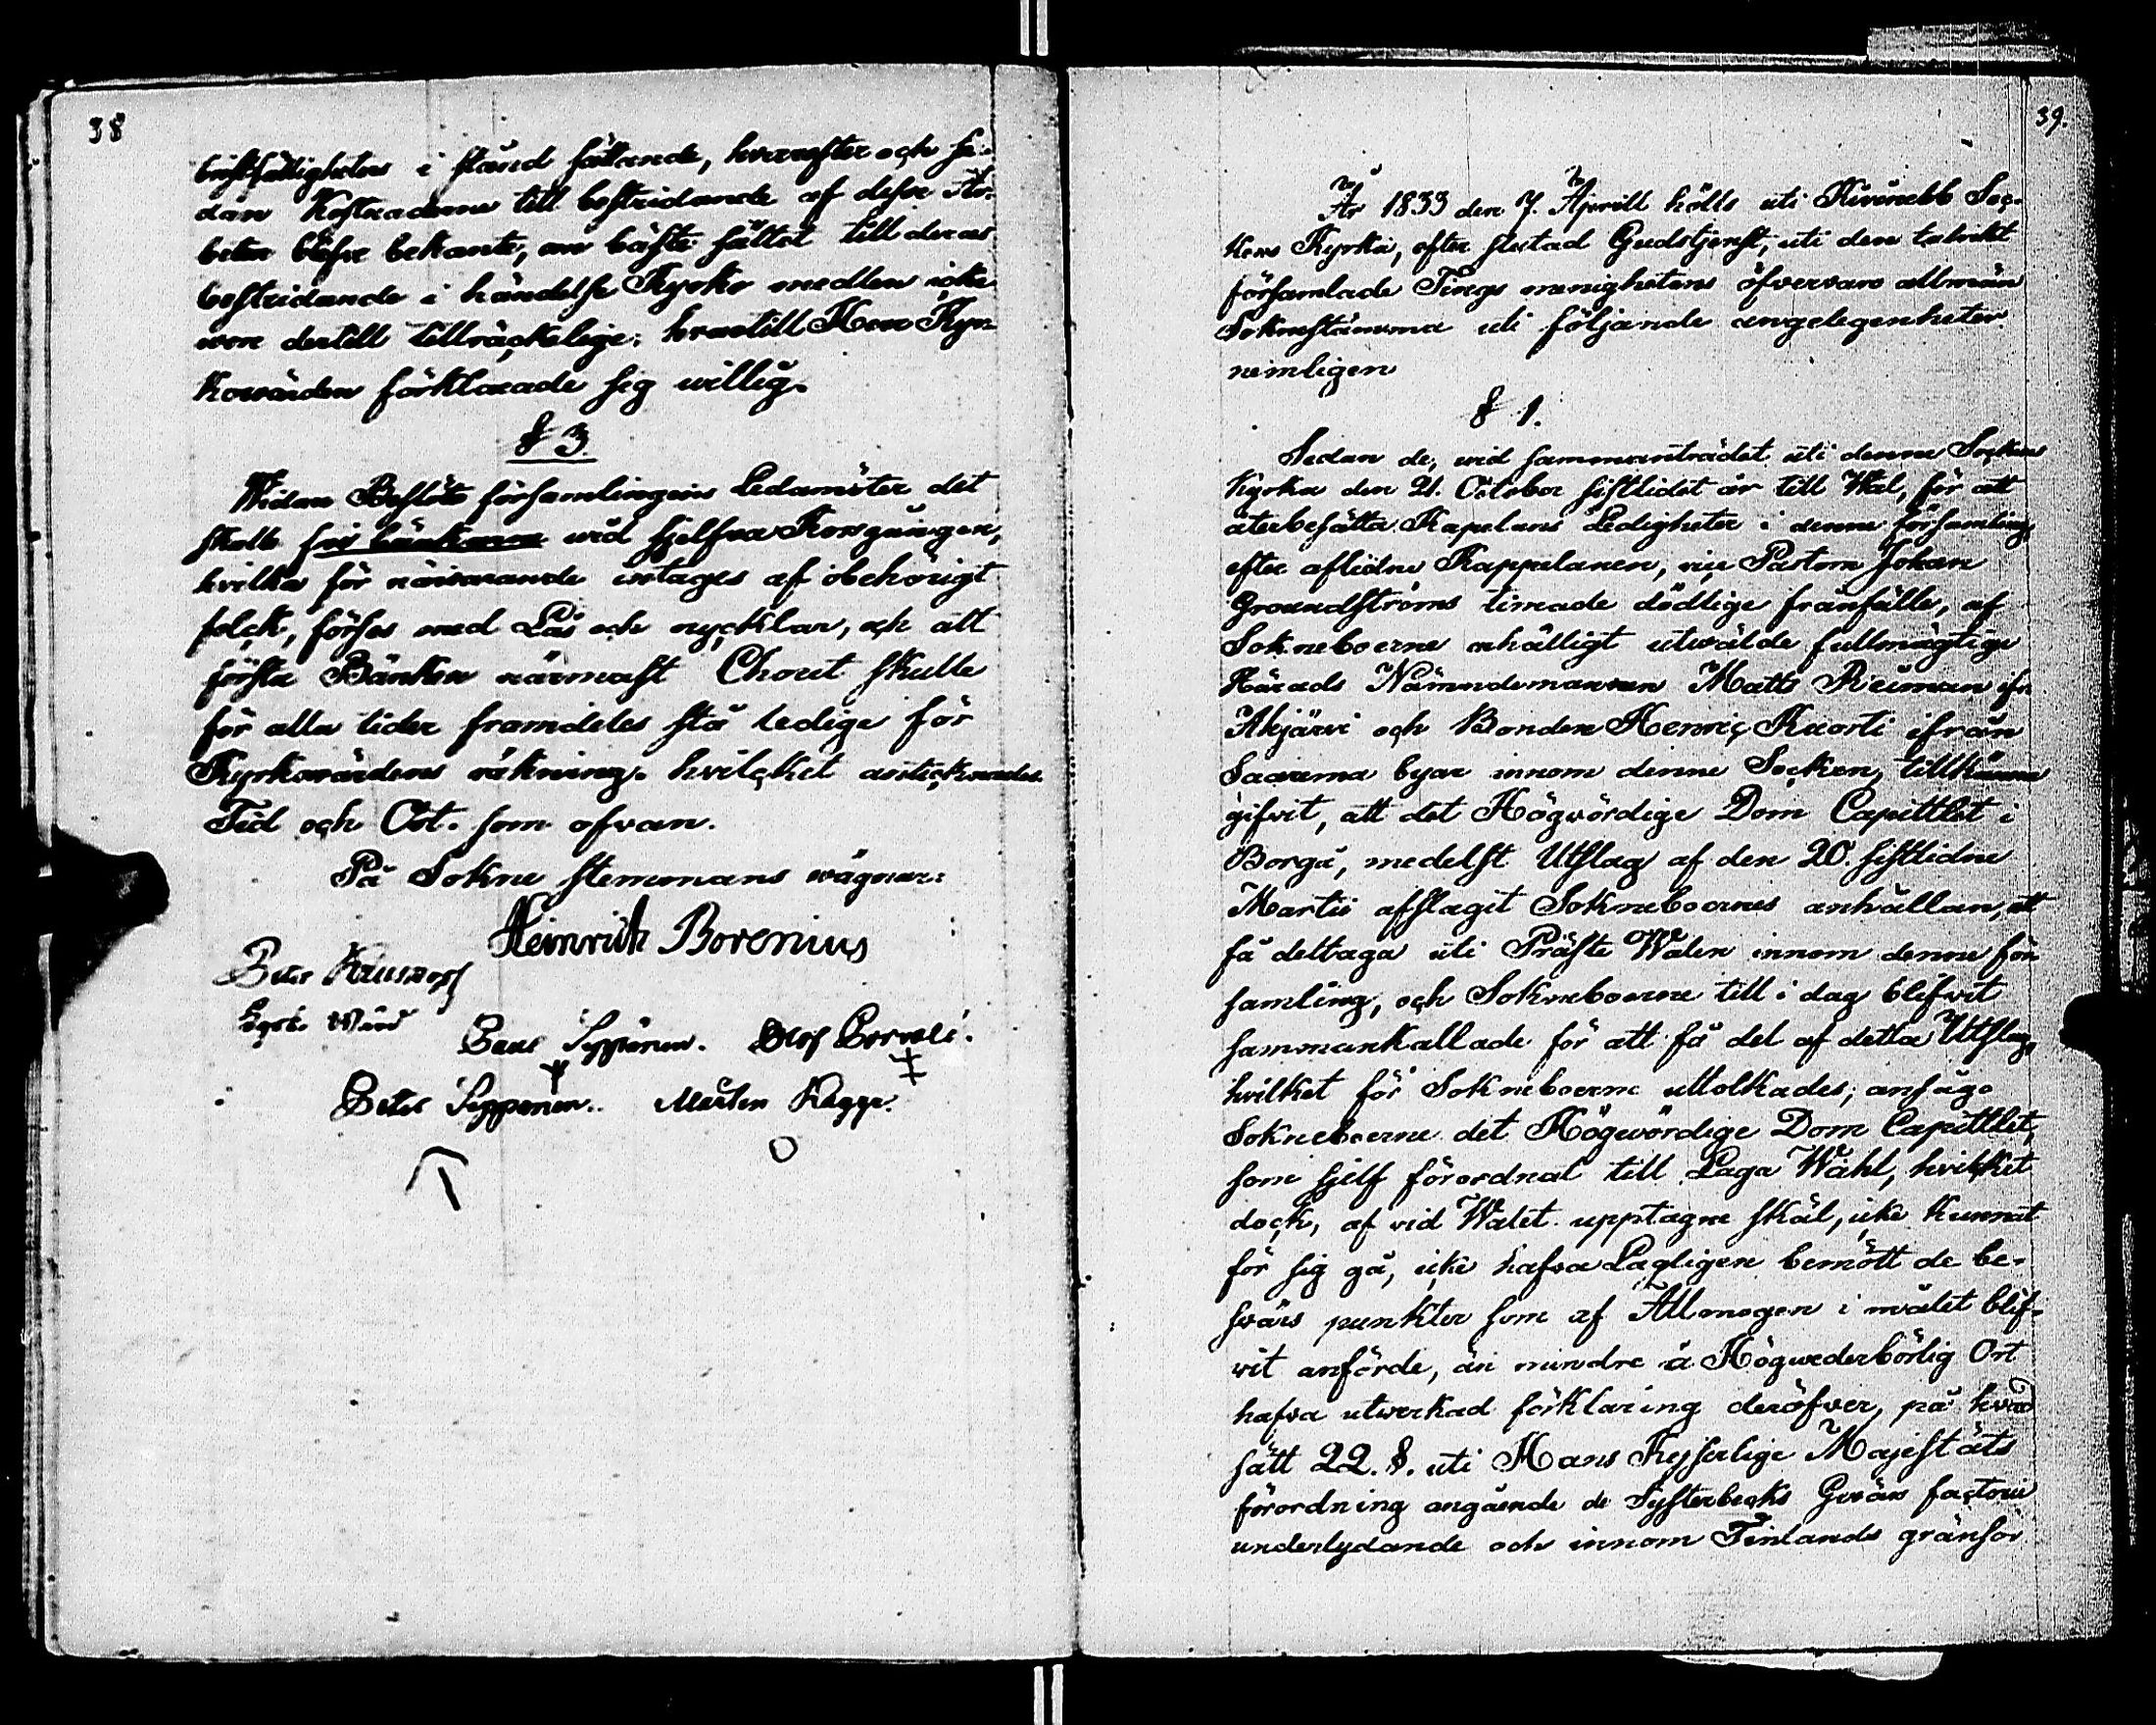 38
bristfälligheten i stånd sättande, hvarefter och se-
dan Kostnaderne till bestridande af desse Ar-
beten blefve bekante, om bäste sättet till deras
bestridande i händelse Kyrko medlen icke
wore dertill tillräckelige; hvartill Herr Kyr-
kowärden förklarade sig willig.
§ 3.
Widare Beslöto församlingens Ledamöter det
skulle bänkarne wid sjelfva Korsgången,
hvilka för närwarande intages af obehörigt
folck, förses med Lås och nycklar, och att
första Bänken närmast Choret skulle
för alla tider framdeles stå ledige för
Kyrkowärdens räkning. hvilcket antecknades.
Tid och Ort. som ofvan.
På Sokne stemmans wägnar:
Heinrich Borenius
Peter
Kyrk. Wärd
Seppänen. Olof
Peter Seppänen. Mårten
39.
År 1833 den 7. Aprill hölls uti Kivinebb Soc-
kens Kyrka, efter slutad Gudstjenst, uti den talrikt
församlade Tings menighetens öfvervaro allmän
Soknestämma uti följande angelegenheter
nemligen
§ 1.
Sedan de, wid sammanträdet uti denne Sockens
Kyrka den 21. October sistlidet år till Wal, för att
återbesätta Kapelans Ledigheter i denne församling,
efter aflidne Kappelanen, vice Pastorn Johan
Groundströms timade dödlige frånfälle, af
Sokneboerne enhälligt utwälde fullmägtige
Härads Nämndemannen Matts ifr.
och Bonden Henric Kuorti ifrån
Saarema byar innom denne Socken, tillkänna
gifvit, att det Högwördige Dom Capittlet i
Borgå, medelst Utslag af den 20. sistlidne
Martii afslagit Sokneboernes anhållan, att
få deltaga uti Präste Walen innom denne för-
samling, och Sokneboerne till i dag blifvit
sammankallade för att få del af detta Utslag,
hvilket för Sokneboerne uttolkades; ansågo
Sokneboerne det Högwördige Dom Capittlet,
som sjelf förordnat till Laga Wahl, hvilket
dock, af vid Walet upptagne skäl, icke kunnat
för sig gå, icke hafva Lagligen bemött de be-
svärs punkter som af Allmogen i målet blif-
vit anförde, än mindre å Högwederbörlig Ort
hafva utwerkad förklaring deröfver, på hvad
sätt 22. §. uti Hans Kejserlige Majestäts
förordning angående de Systerbecks Gevärs factorie
underlydande och innom Finlands gränsor